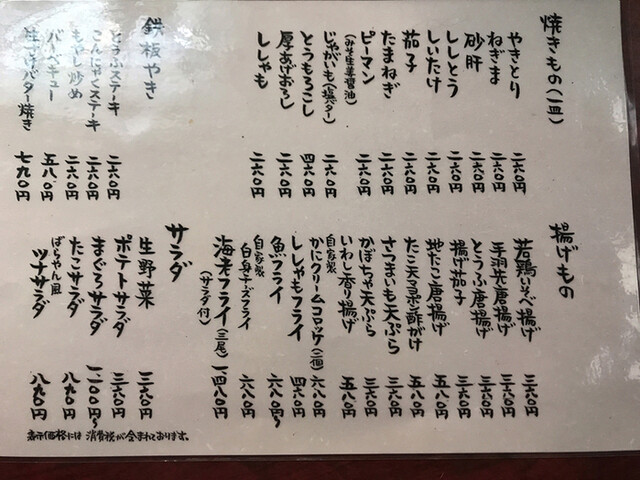 焼きもの(一皿)
やきとり 二六〇円
ねぎま 二六〇円
砂肝 二六〇円
ししとう 二六〇円
しいたけ 二六〇円
茄子 二六〇円
たまねぎ 二六〇円
ピーマン 二六〇円
(みそ生姜醤油)
じゃがいも(塩バター) 二六〇円
とうもろこし 四六〇円
厚あげおろし 二六〇円
ししゃも 二六〇円
鉄板やき
とうふステーキ 二六〇円
こんにゃくステーキ 二六〇円
もやし炒め 二六〇円
バーベキュー 五八〇円
バター焼き 七九〇円
揚げもの
若鶏いそべ揚げ 三六〇円
手羽先唐揚げ 三六〇円
とうふ唐揚げ 三六〇円
揚げ茄子 三六〇円
地だこ唐揚げ 五八〇円
たこ天ぷら酢がけ 五八〇円
さつまいも天ぷら 三六〇円
かぼちゃ天ぷら 三六〇円
いわし香り揚げ 五八〇円
自家製
かにクリームコロッケ(二個) 六八〇円
ししゃもフライ 四六〇円
魚フライ 六八〇円〜
自家製
白身チーズフライ 六八〇円
海老フライ(三尾) 一四八〇円
(サラダ付)
サラダ
生野菜 三六〇円
ポテトサラダ 三六〇円
まぐろサラダ 一一〇〇円〜
たこサラダ 八九〇円
ばらちゃん風
ツナサラダ 八九〇円
表示価格には消費税が含まれております。